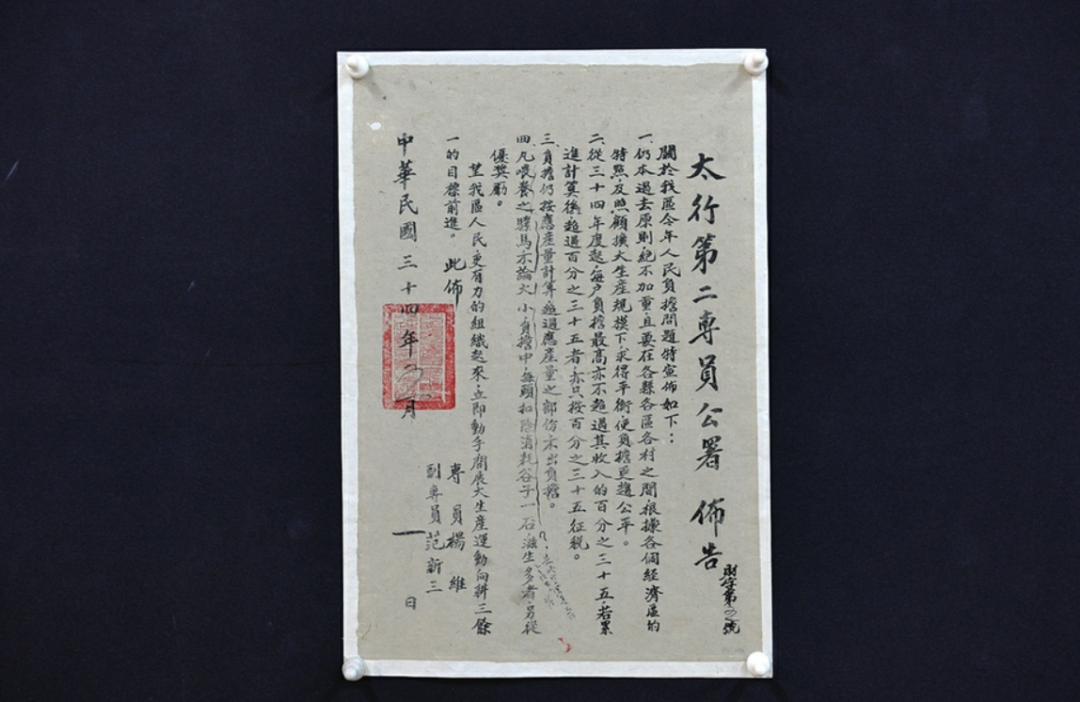 太行第二專員公署 佈告
財字第二號
關於我區今年人民負擔問題特宣佈如下：
一、仍本過去原則，絕不加重，且要在各縣各區各村之間，根據各個經濟區的
特點，及照顧擴大生產規模下，求得平衡，使負擔更趨公平。
二、從三十四年度起，每戶負擔最高亦不超過其收入的百分之三十五，若累
進計算後，超過百分之三十五者，亦只按百分之三十五征税。
三、負擔仍按應產量計算，超過應產量之部份不出負擔。
四、凡喂養之騾馬，不論大小，負擔中，每頭扣除消耗谷子一石，滋生多者，另從
優獎勵。
望我區人民，更有力的組織起來，立即動手開展大生產運動，向耕三餘
一的目標前進。 此佈
專員楊維
副專員范新三
中華民國三十四年二月一日